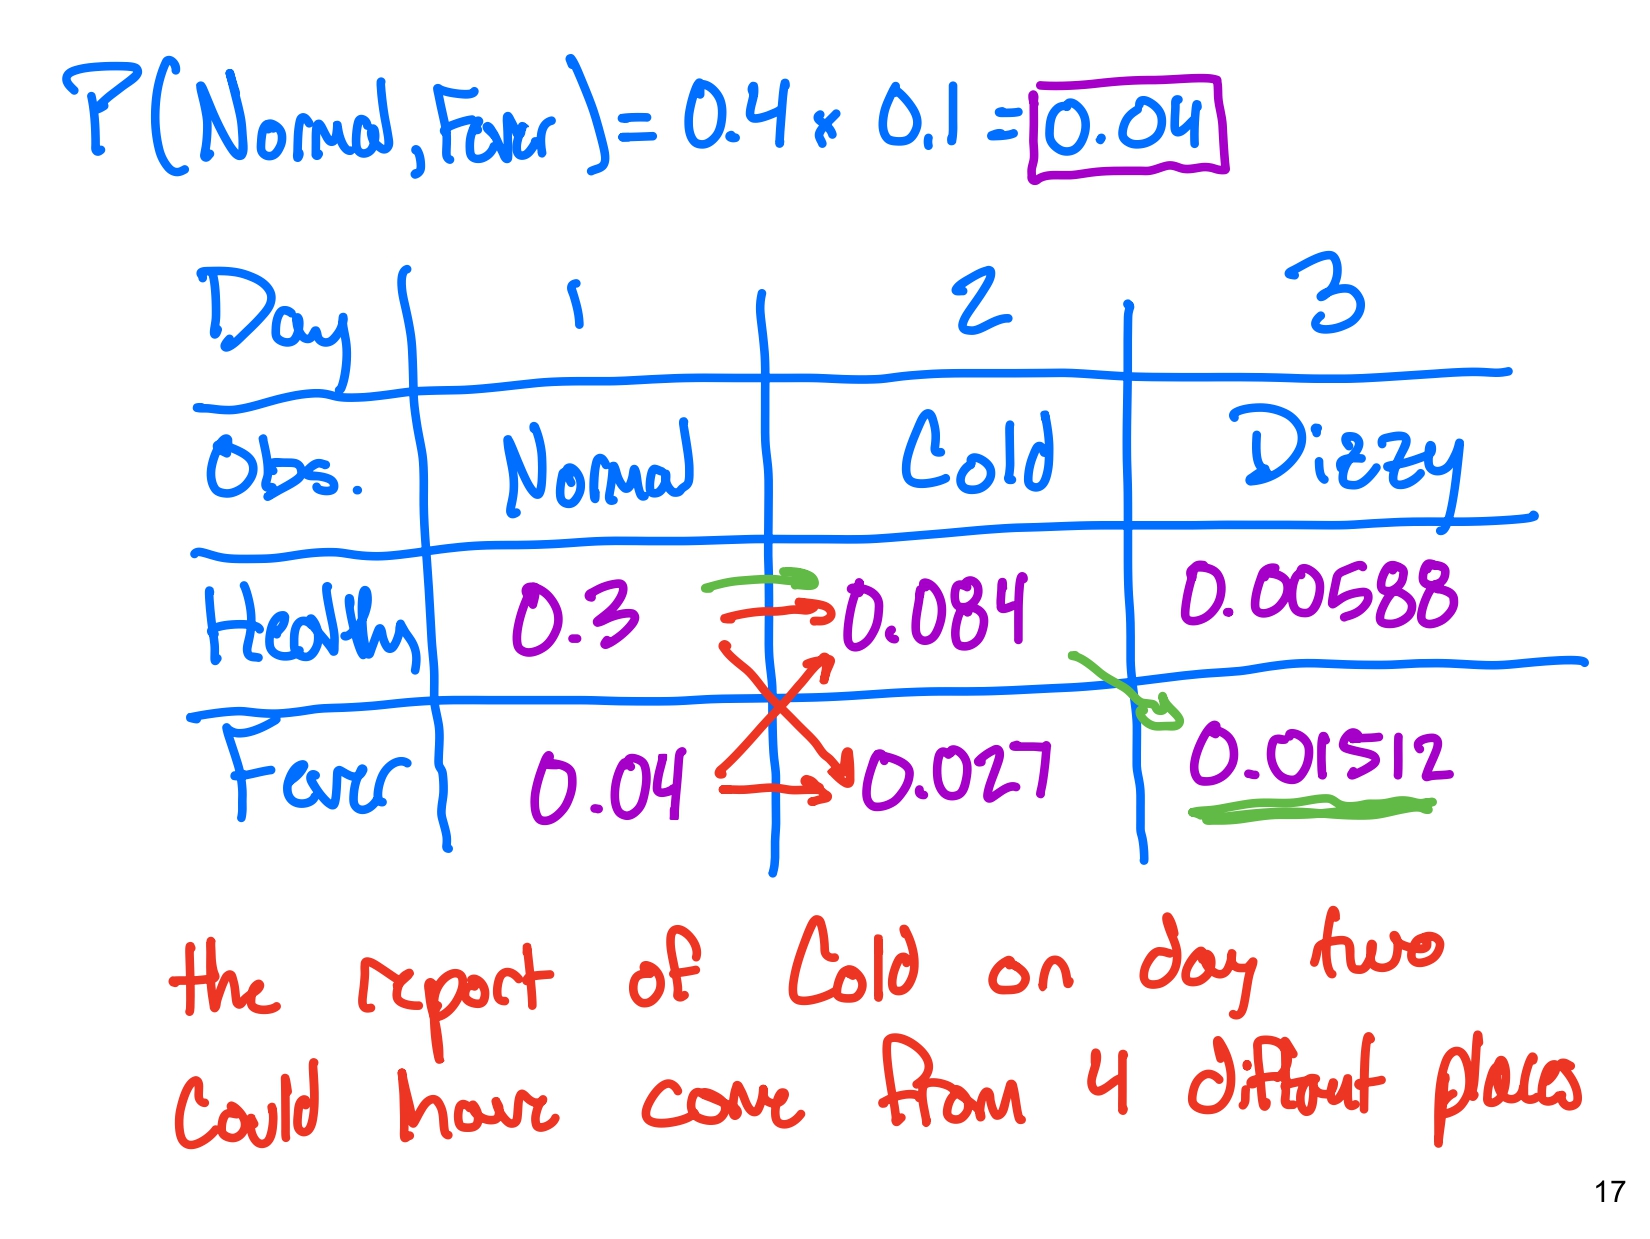 P(Normal, Fever) = 0.4 * 0.1 = 0.04
Day 1 2 3
Obs. Normal Cold Dizzy
Healthy 0.3 0.084 0.00588
Fever 0.04 0.027 0.01512
the report of Cold on day two
Could have come from 4 different places
17